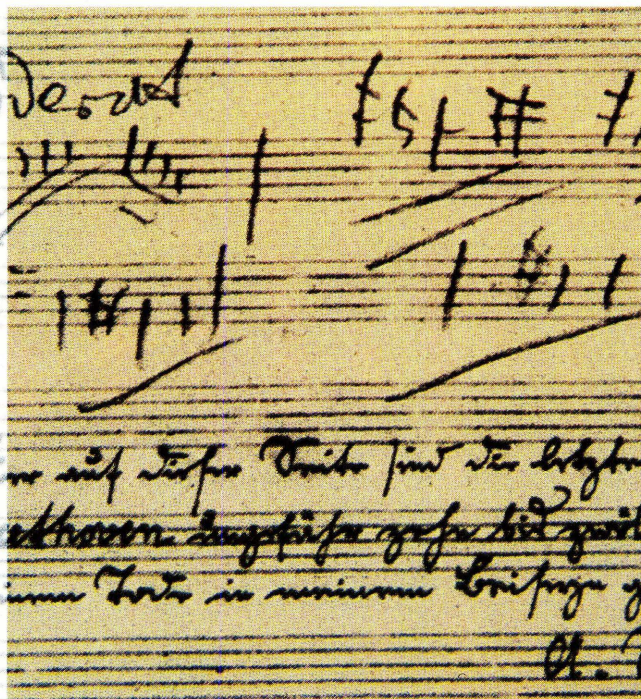 er auf dieser Seite sind die letzten
ethoven ungefähr zehn bis zwöl
inem Tode in meinem Beisein
A.